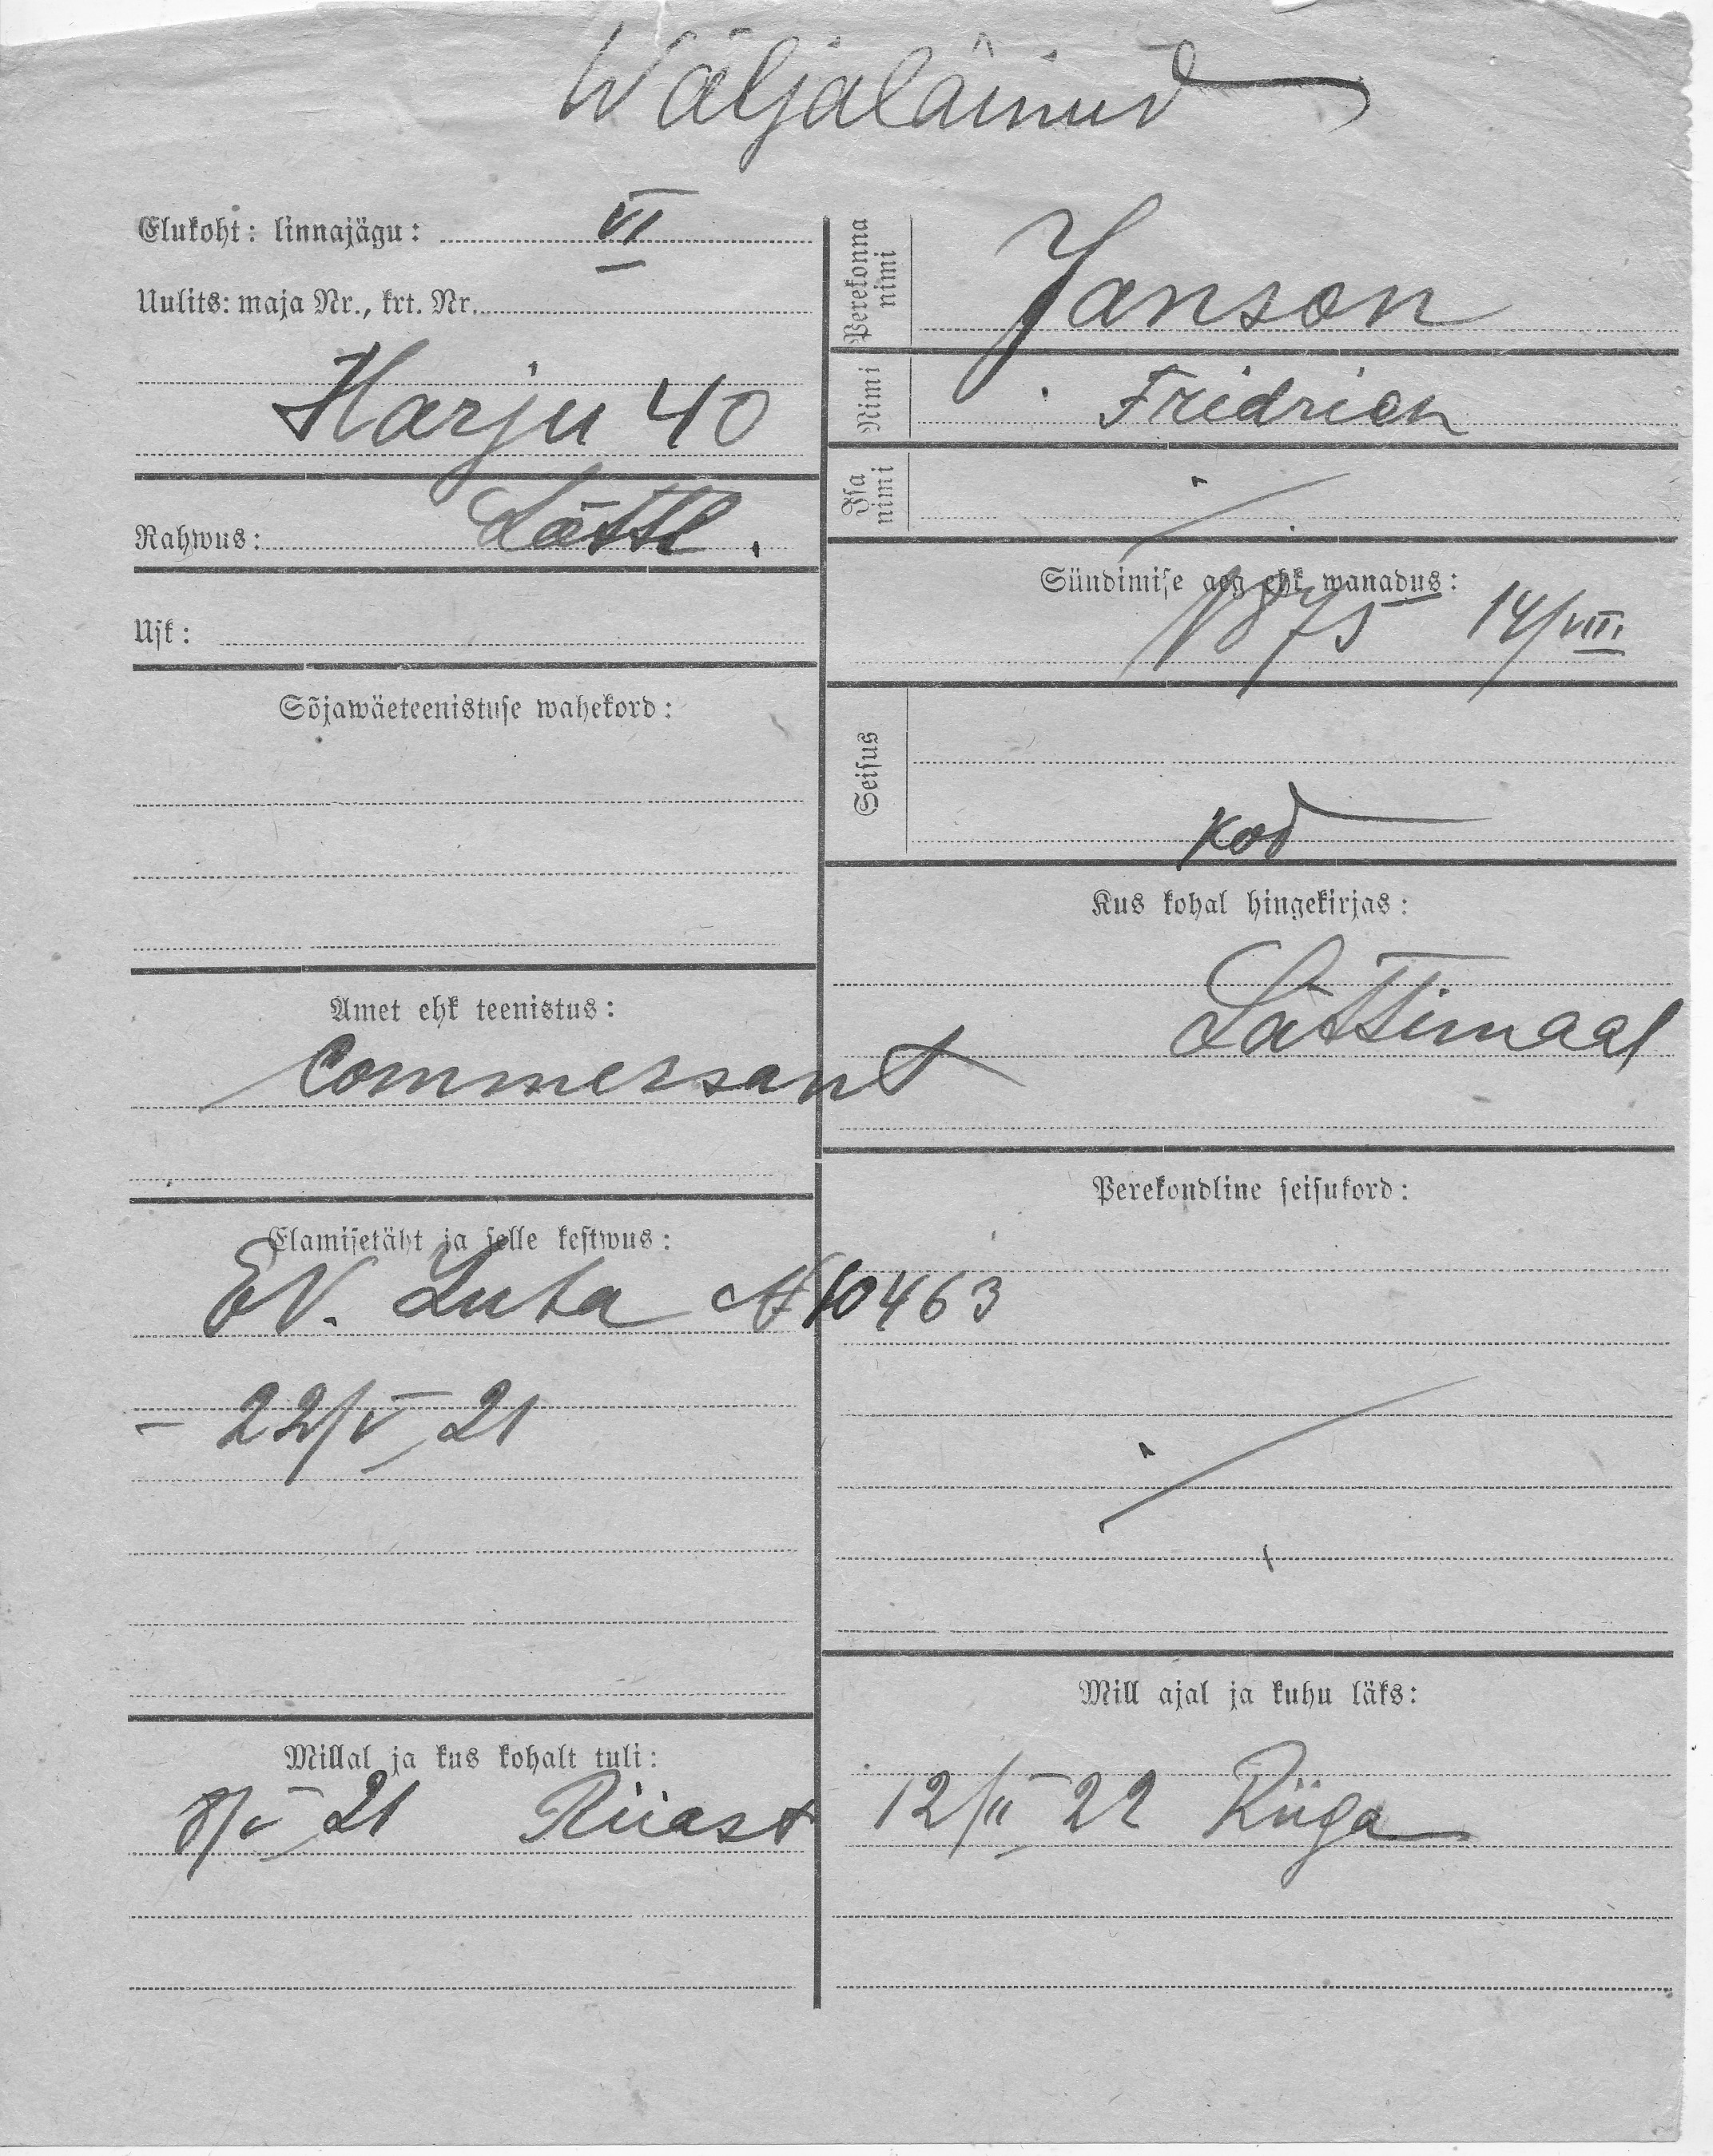 Wäljaläinud
Elukoht: linnajägu: VI
Uulits: maja Nr., krt. Nr.
Harju 40
Rahwus: Lättl.
Usk:
Sõjawäeteenistuse wahekord:
Amet ehk teenistus:
Commersant
Elamisetäht ja selle kestwus:
EV. Luba № 10463
- 22/V 21
Millal ja kus kohalt tuli:
8/V 21 Riiast
Perekonna nimi
Janson
Nimi
Fridrich
Isa nimi
Sündimise aeg ehk wanadus:
1875 14/VIII.
Seisus
kod
Kus kohal hingekirjas:
Lättimaal
Perekondline seisukord:
Mill ajal ja kuhu läks:
12/II 22 Riiga